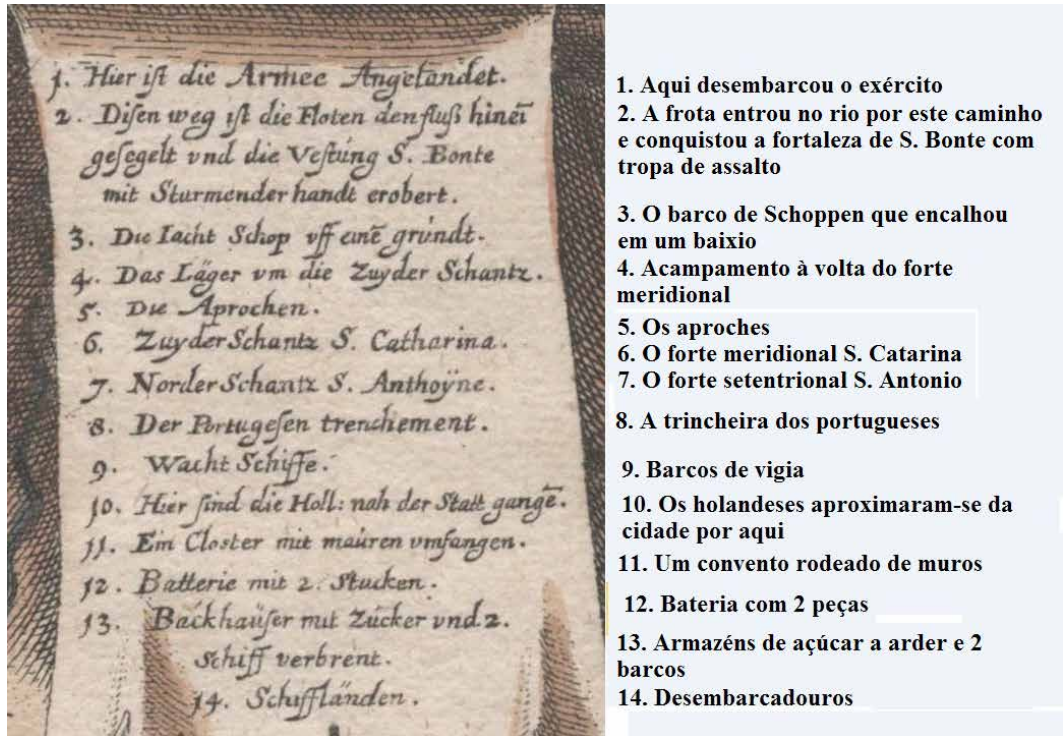 1. Hier ist die Armee Angelandet.
2. Disen weg ist die Floten den fluß hinei̅
gesegelt vnd die Vestung S. Bonte
mit Sturmender handt erobert.
3. Die Iacht Schop vff eine̅ grundt.
4. Das Läger vm die Zuyder Schantz.
5. Die Aprochen.
6. Zuyder Schantz S. Catharina.
7. Norder Schantz S. Anthoÿne.
8. Der Portugesen trenchement.
9. Wacht Schiffe.
10. Hier sind die Holl: nah der Statt gange̅.
11. Ein Closter mit mauren vmfangen.
12. Batterie mit 2. Stucken.
13. Backhaüser mit Zucker vnd 2.
Schiff verbrent.
14. Schiffländen.
1. Aqui desembarcou o exército
2. A frota entrou no rio por este caminho
e conquistou a fortaleza de S. Bonte com
tropa de assalto
3. O barco de Schoppen que encalhou
em um baixio
4. Acampamento à volta do forte
meridional
5. Os aproches
6. O forte meridional S. Catarina
7. O forte setentrional S. Antonio
8. A trincheira dos portugueses
9. Barcos de vigia
10. Os holandeses aproximaram-se da
cidade por aqui
11. Um convento rodeado de muros
12. Bateria com 2 peças
13. Armazéns de açúcar a arder e 2
barcos
14. Desembarcadouros